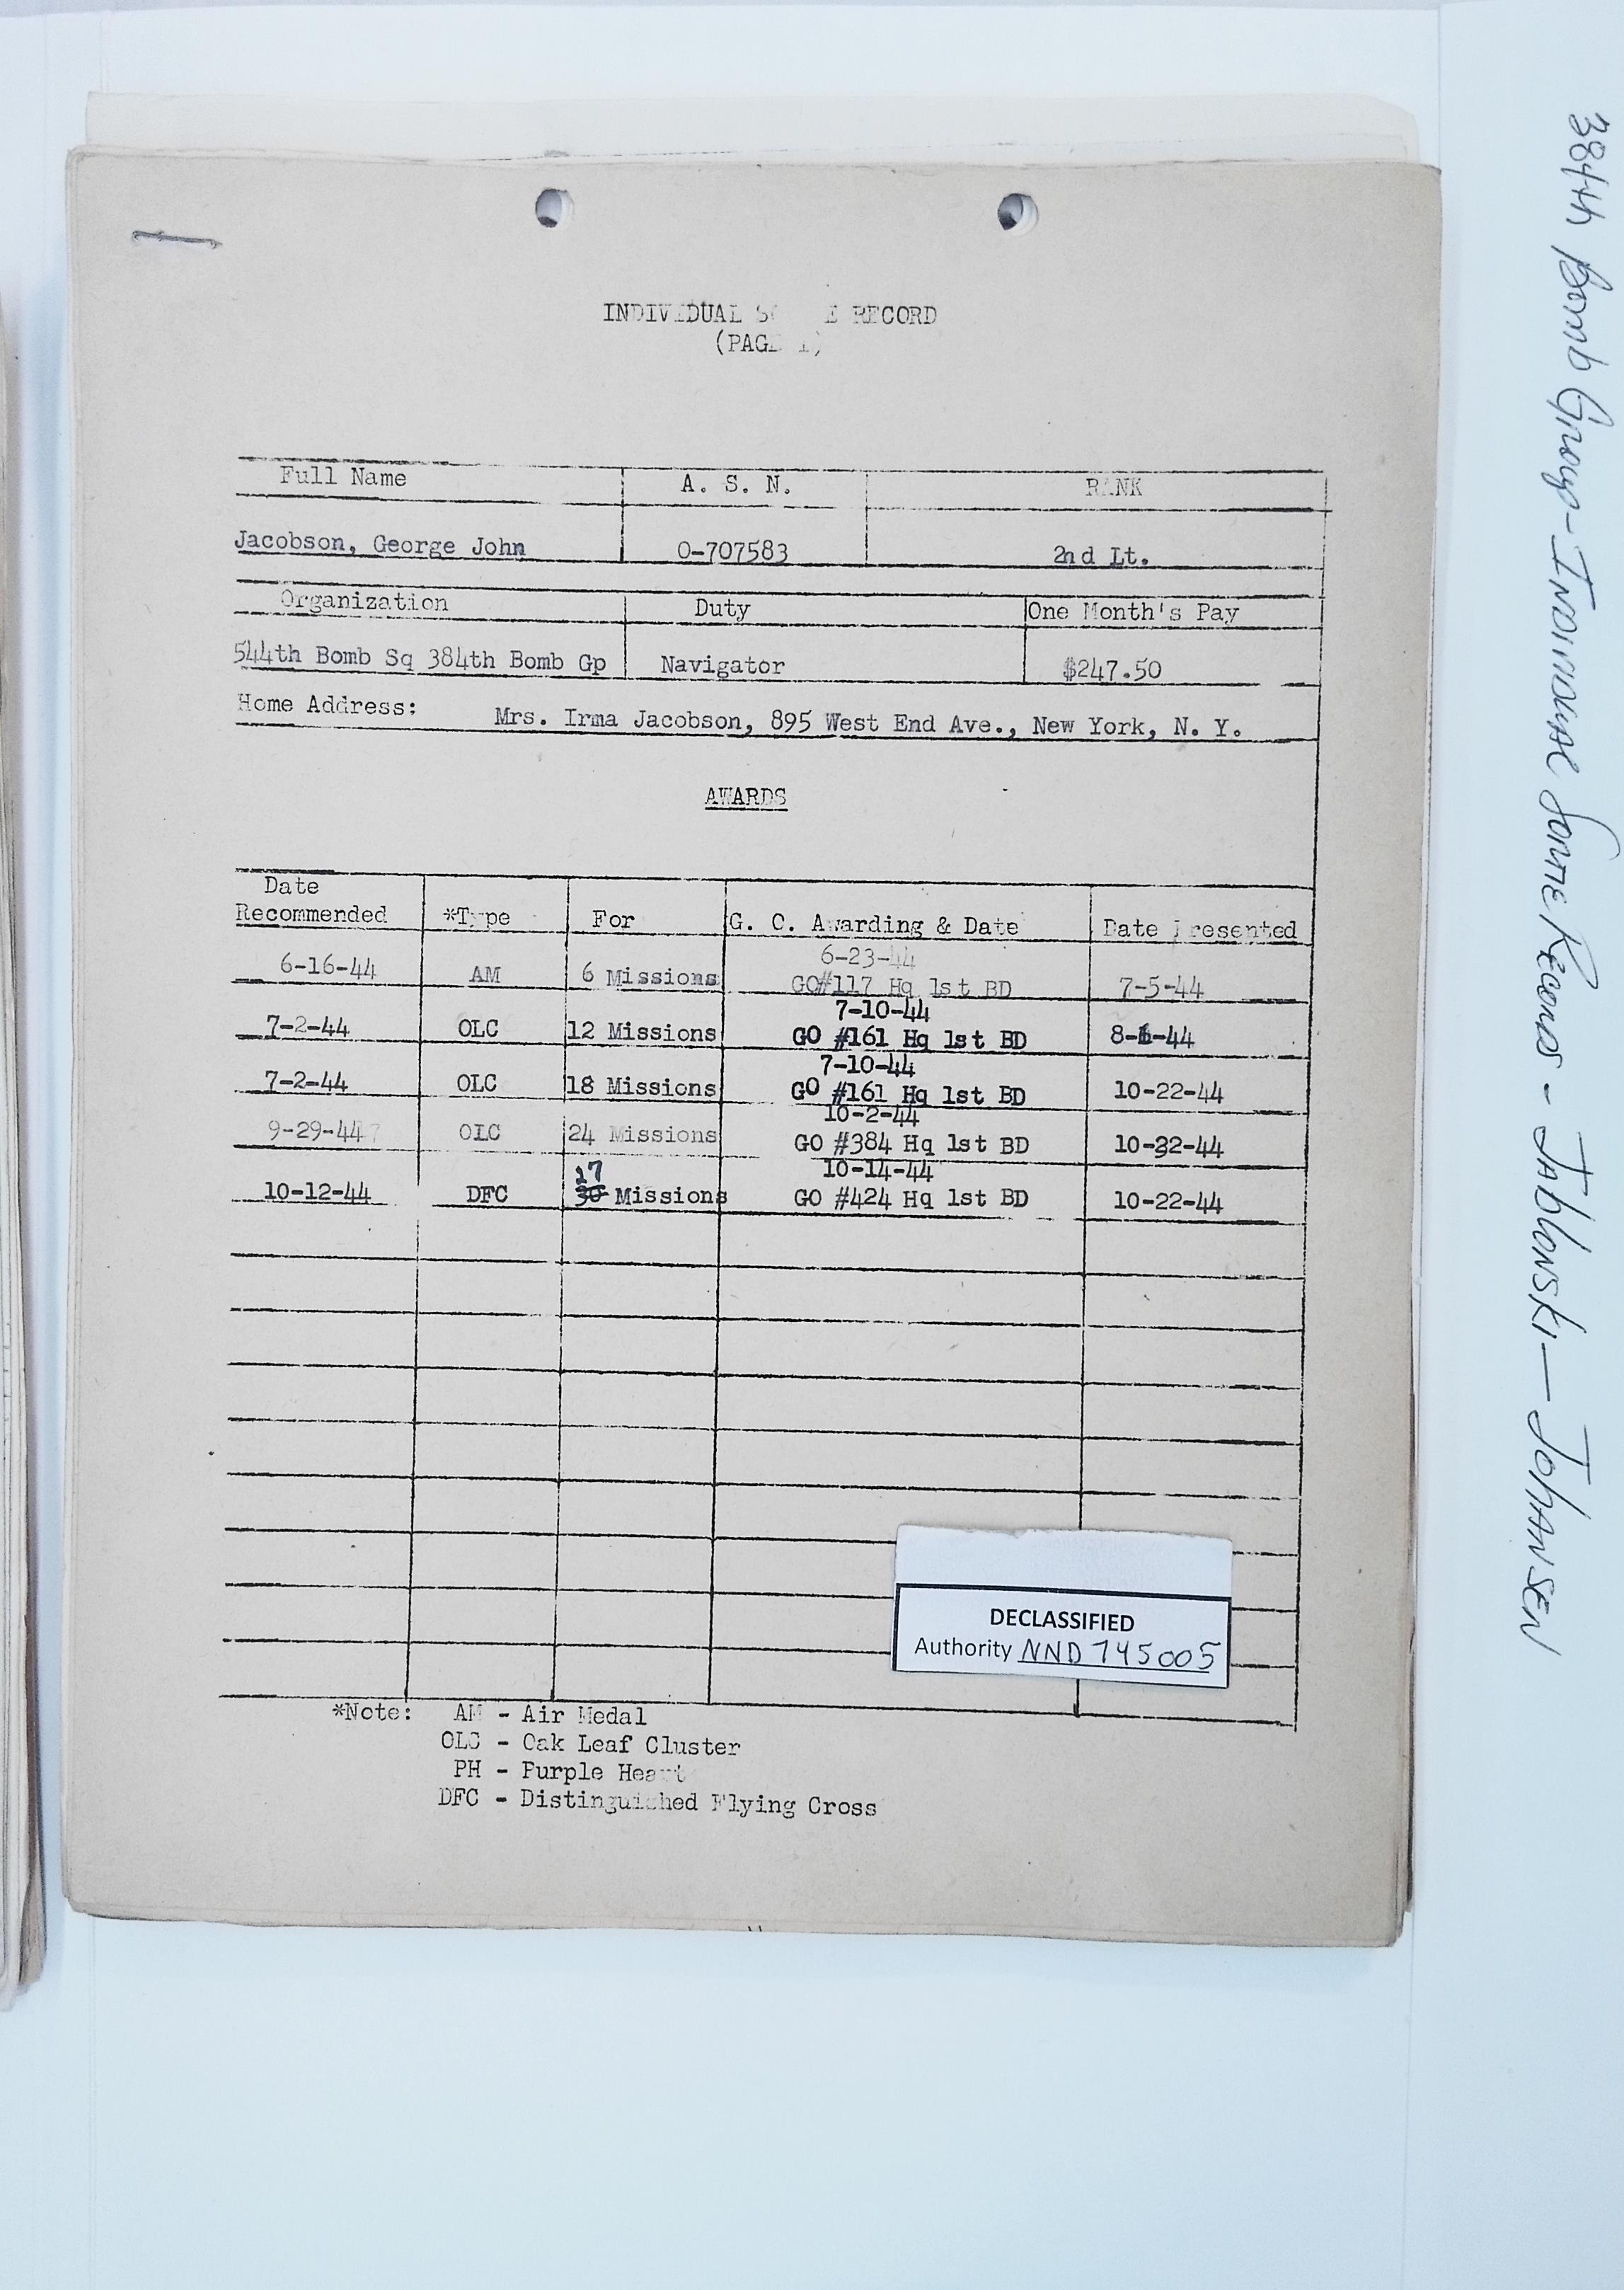 INDIVIDUAL RECORD
(PAGE 1)
Full Name A. S. N. RANK
Jacobson, George John 0-707583 2nd Lt.
Organization Duty One Month's Pay
544th Bomb Sq 384th Bomb Gp Navigator $247.50
Home Address: Mrs. Irma Jacobson, 895 West End Ave., New York, N. Y.
AWARDS
Date
Recommended *Type For G. C. Awarding & Date Date Presented
6-23-44
6-16-44 AM 6 Missions GO#117 Hq 1st BD 7-5-44
7-10-44
7-2-44 OLC 12 Missions GO #161 Hq 1st BD
7-10-44
7-2-44 OLC 18 Missions GO #161 Hq 1st BD 10-22-44
10-2-44
9-29-44 OLC 24 Missions GO #384 Hq 1st BD
27 10-14-44
10-12-44 DFC 30 Missions GO #424 Hq 1st BD 10-22-44
DECLASSIFIED
Authority NND 745005
*Note: AM - Air Medal
OLC - Oak Leaf Cluster
PH - Purple Heart
DFC - Distinguished Flying Cross
384th Bomb Group - Individual Sortie Records - Jablonski — Johansen